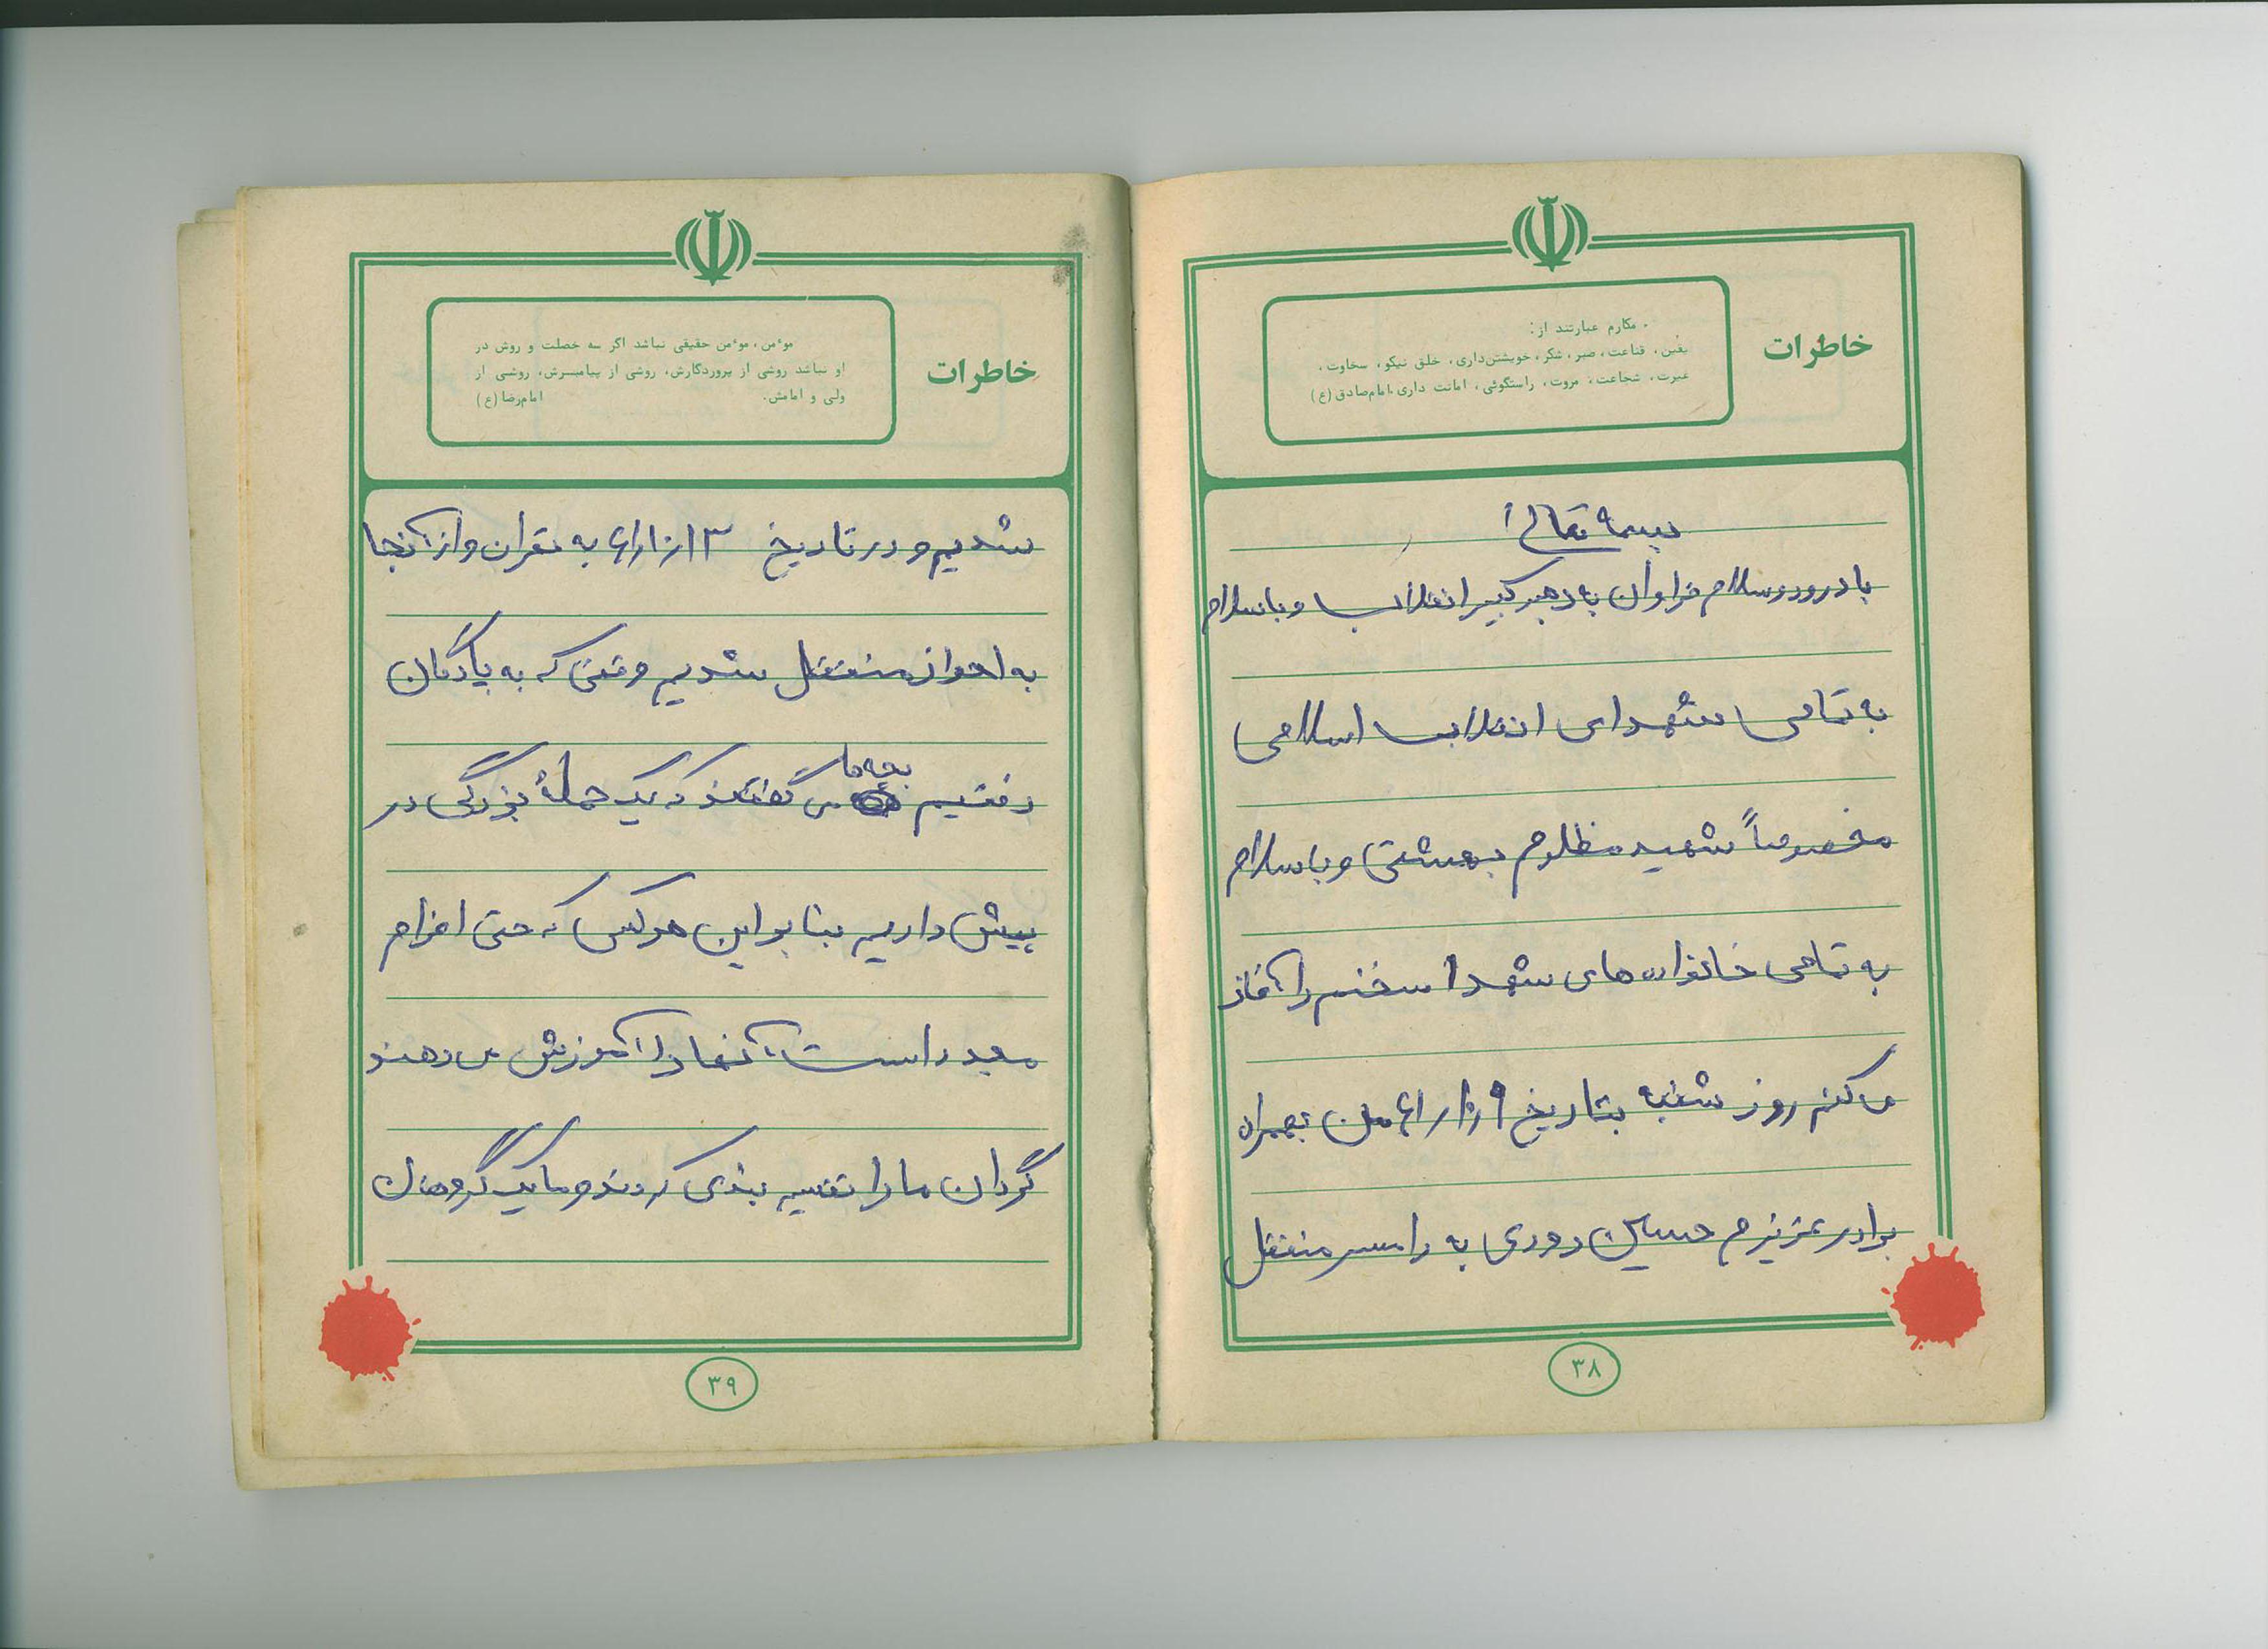 خاطرات
مکارم عبارتند از:
یقین، قناعت، صبر، شکر، خویشتن‌داری، خلق نیکو، سخاوت،
غیرت، شجاعت، مروت، راستگوئی، امانت داری. امام صادق (ع)
بسمه تعالی
با درود و سلام فراوان به رهبر کبیر انقلاب و با سلام
به تمامی شهدای انقلاب اسلامی
مخصوصاً شهید مظلوم بهشتی و با سلام
به تمامی خانواده‌های شهدا سخنم را آغاز
می کنم روز شنبه بتاریخ من بهمراه
برادر عزیزم حسین دوری به رامسر منتقل
۳۸
خاطرات
موءمن، موءمن حقیقی نباشد اگر سه خصلت و روش در
او نباشد روشی از پروردگارش، روشی از پیامبرش، روشی از
ولی و امامش. امام رضا (ع)
شدیم و در تاریخ به تهران و از آنجا
به اهواز منتقل شدیم وقتی که به پادگان
رفتیم بچه‌ها می گفتند که یک حملهٔ بزرگی در
پیش داریم بنابراین هر کس که حتی اعزام
مجدد است آنها را آموزش می دهند
گردان ما را تقسیم بندی کردند و ما یک گروهان
۳۹